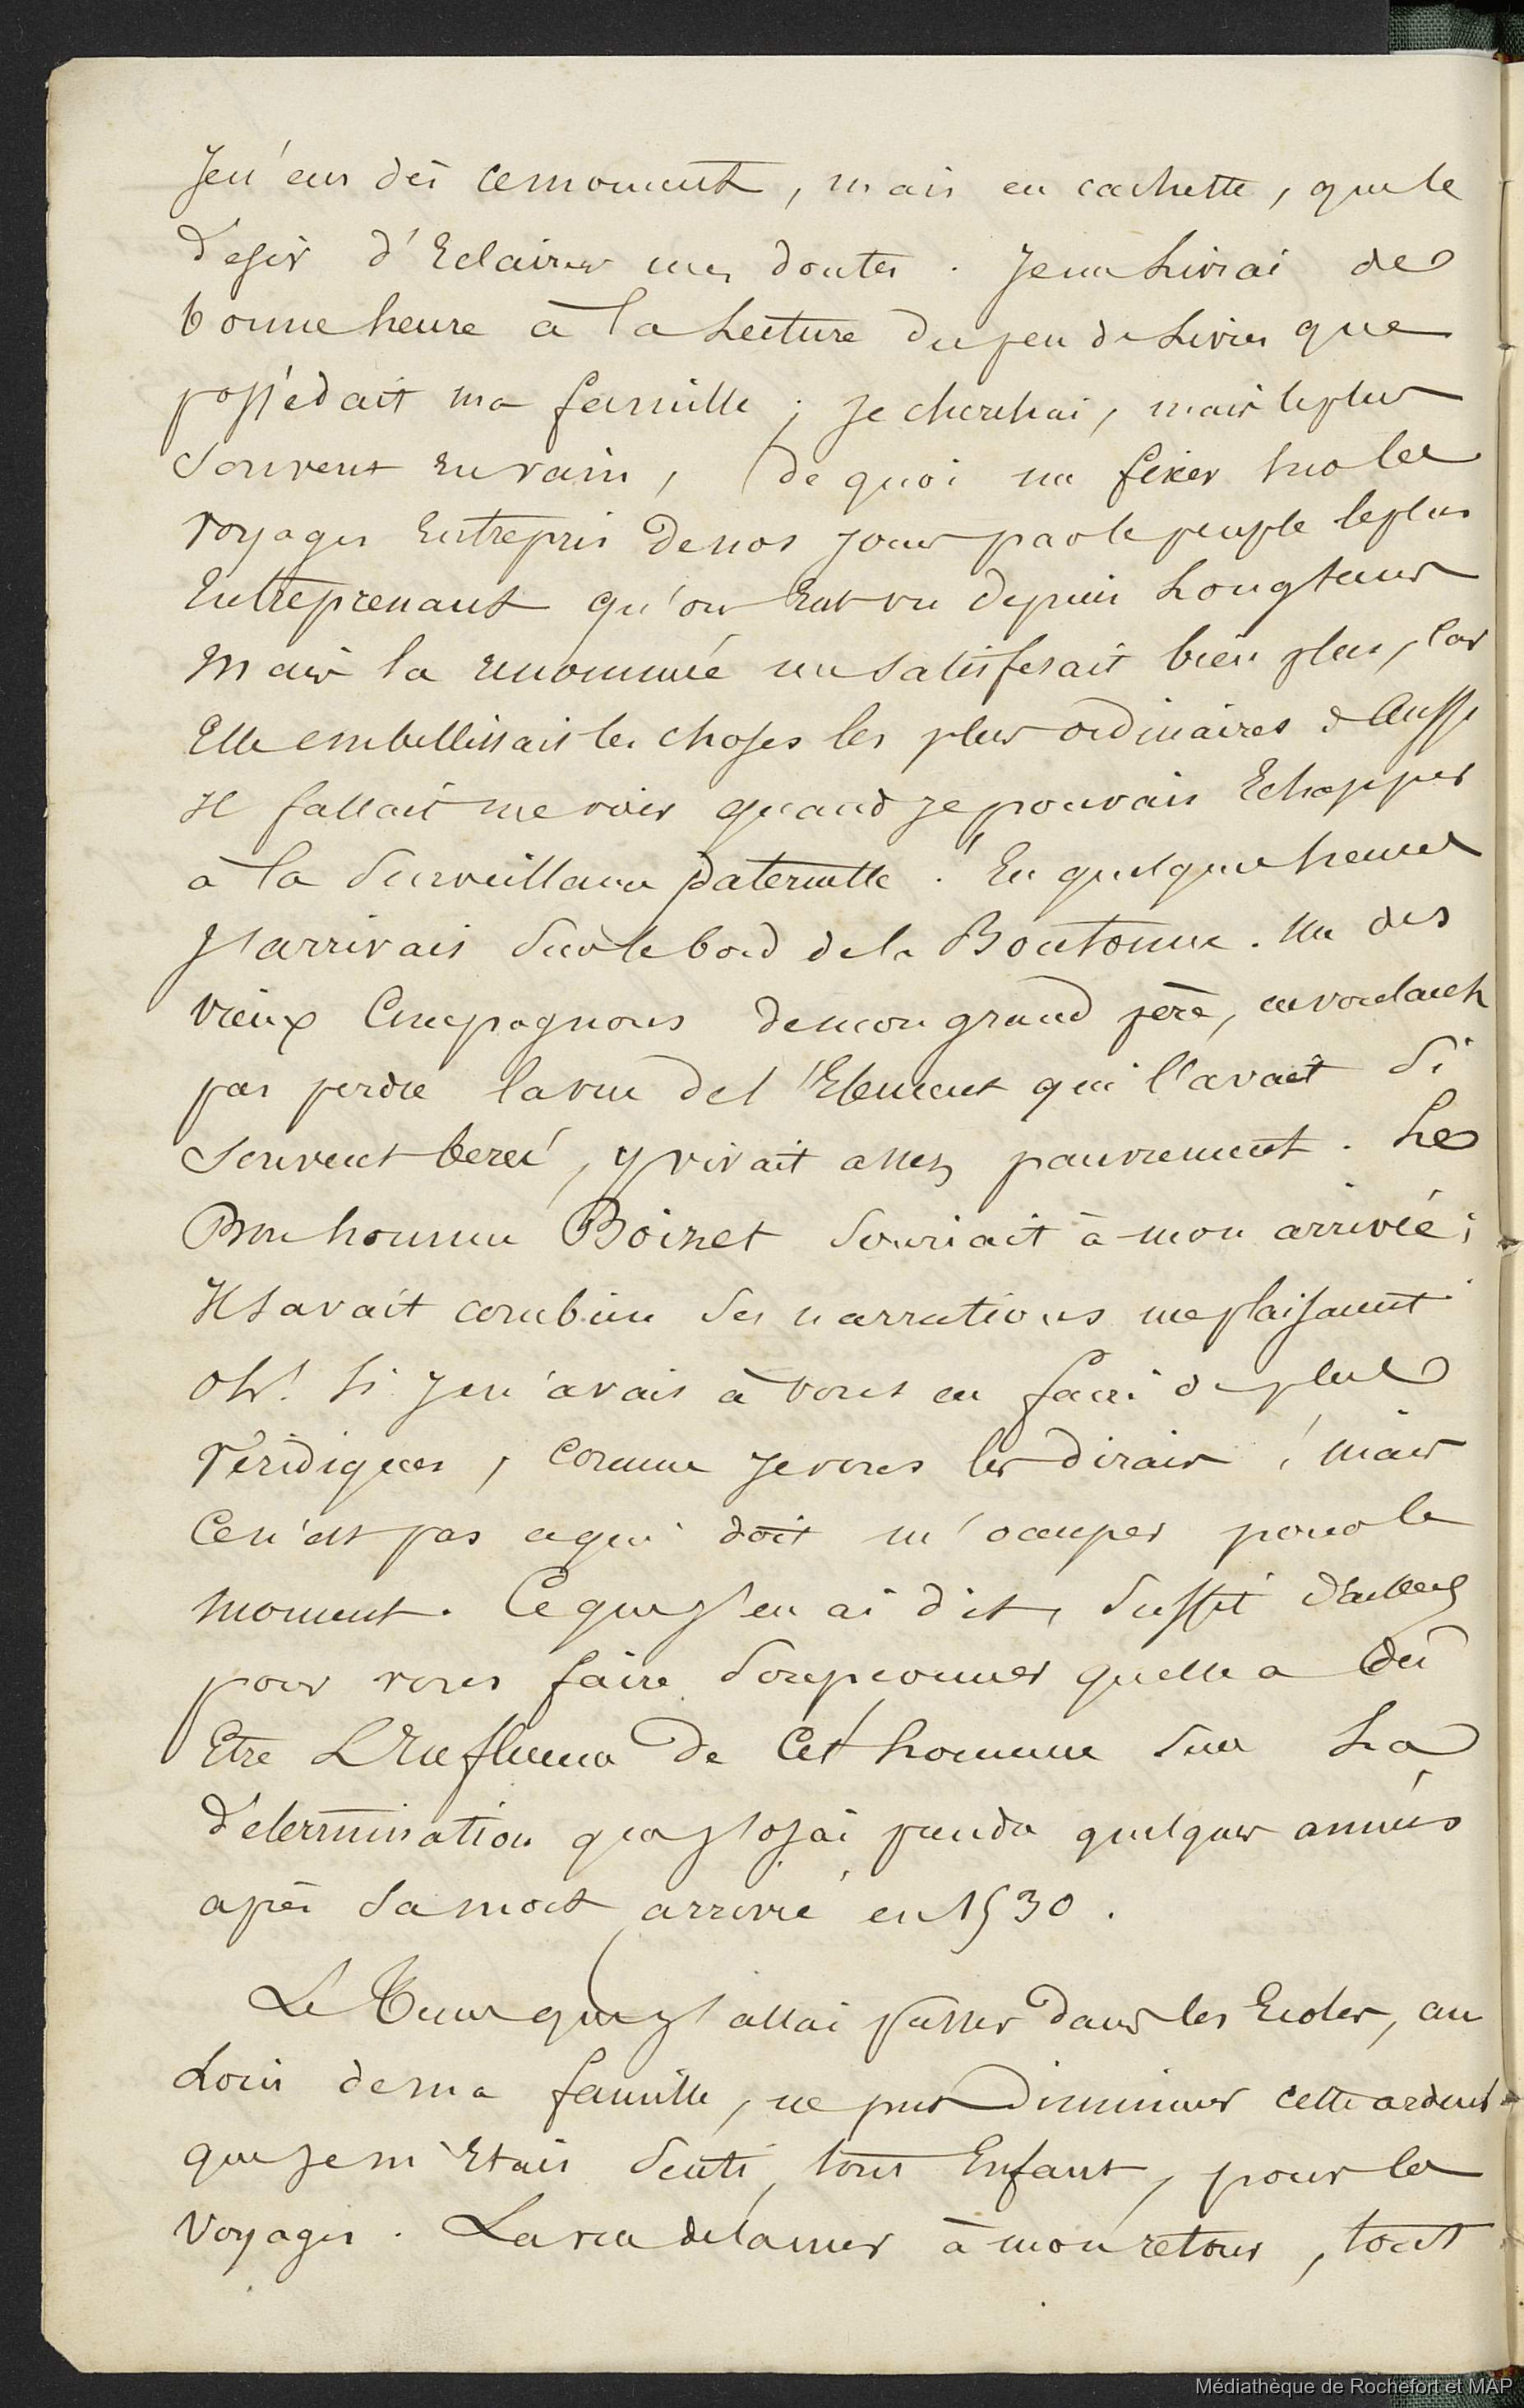 Je n'eus dès ce moment, mais en cachette, que le
desir d'Eclairer mes doutes. Je me Livrai de
bonne heure à la Lecture du peu de Livres que
possédait ma famille ; Je cherchai, mais le plus
Souvent En vain, de quoi me fixer sur les
Voyages Entrepris de nos jours par le peuple le plus
Entreprenant qu'on Eut vu depuis Longtems
Mais la renommée me Satisfesait bien plus, Car
Elle embellissait les choses les plus ordinaires & Aussi
Il fallait me voir quand Je pouvais Echapper
à la Surveillance paternelle. En quelques heures
J'arrivais Sur le bord de la Boutonne. Un des
vieux Compagnons de mon grand père, ne voulant
pas perdre la vue de l'Element qui l'avait Si
Souvent bercé, y vivait assez pauvrement. Le
Bonhomme Boinet Souriait à mon arrivée ;
Il Savait combien Ses narrations me plaisaient
Oh! Si Je n'avais à vous en faire de plus
Véridiques, Comme Je vous les dirais ; mais
Ce n'est pas ce qui doit m'occuper pour le
moment. Ce que J'en ai dit, Suffit d'ailleurs
pour vous faire Soupçonner quelle a dû
Etre L'Influence de Cet homme Sur La
détermination que J'osai prendre quelques années
après Sa mort arrivée en 1530.
Le Tems que J'allai passer dans les Ecoles, au
Loin de ma famille, ne put Diminuer cette ardeur
que Je m'Etais Senti, tout Enfant, pour les
Voyages. La vue de la mer à mon retour, tout
Médiathèque de Rochefort et MAP